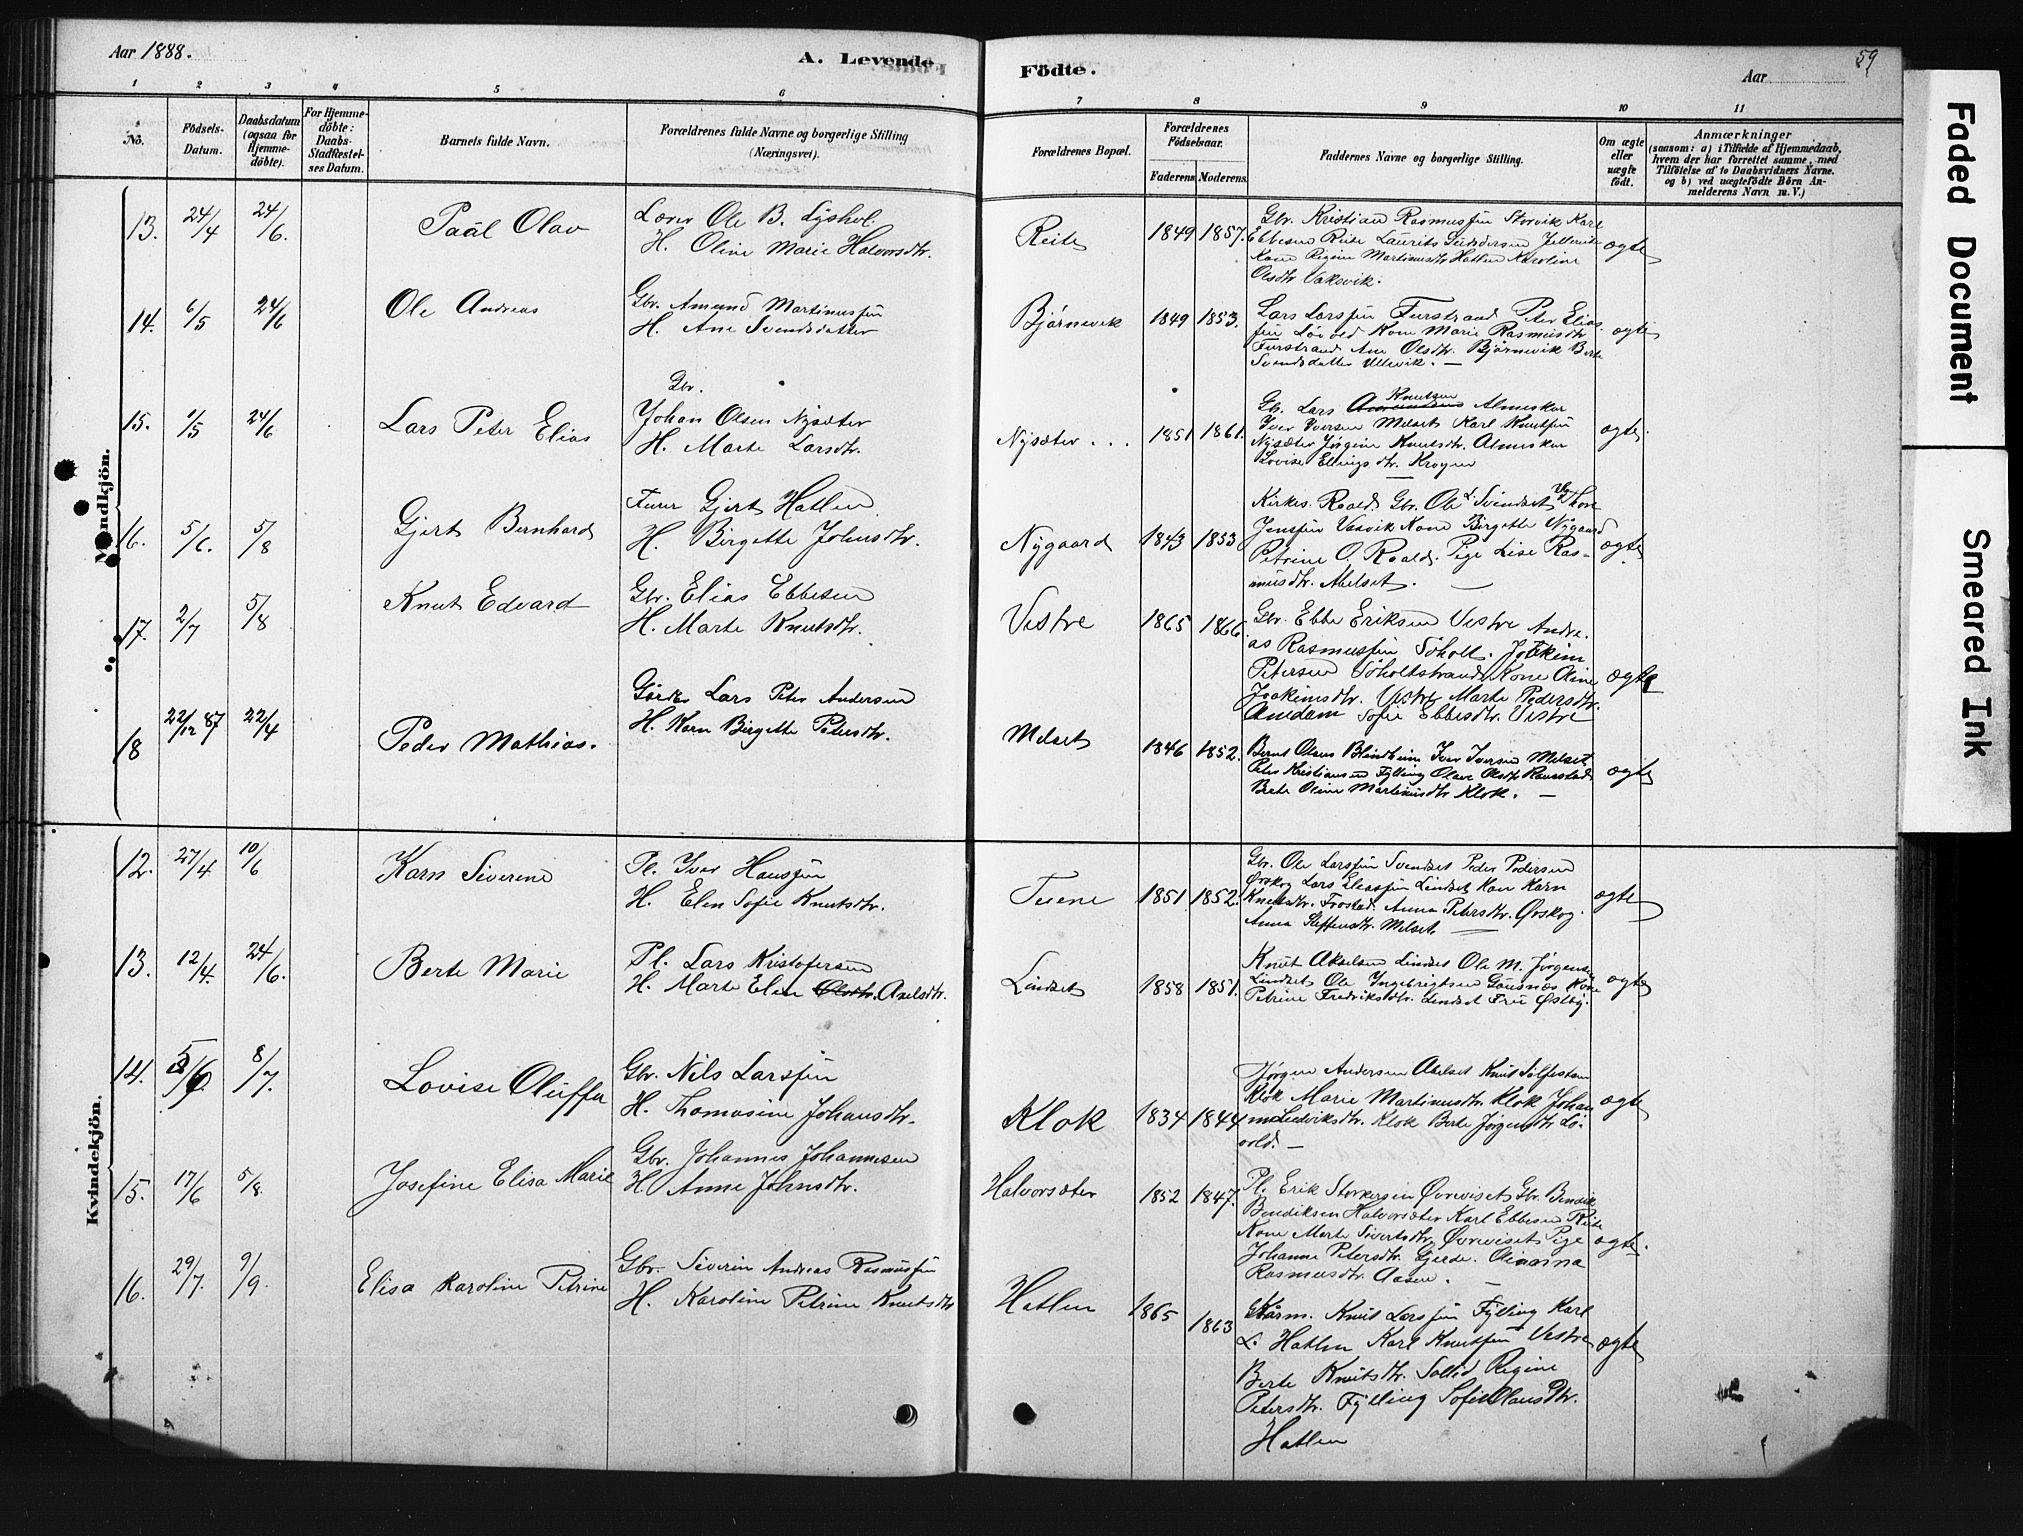 Aar 1888.
A. Levende
Födte.
Aar
59
1 2 3 4 5 6 7 8 9 10 11
No.
Födsels-Datum.
Daabsdatum (ogsaa for Hjemme-döbte).
For Hjemme-döbte: Daabs-Stadfæstel-ses Datum.
Barnets fulde Navn.
Forældrenes fulde Navne og borgerlige Stilling (Næringsvei).
Forældrenes Bopæl.
Forældrenes Födselsaar.
Faderens. Moderens.
Faddernes Navne og borgerlige Stilling.
Om ægte eller uægte födt.
Anmærkninger
(saasom: a) i Tilfælde af Hjemmedaab,
hvem der har forrettet samme, med
Tilföielse af to Daabsvidners Navne.
og b) ved uægtefödte Börn An-
melderens Navn m. V.)
Mandkjön.
13. 24/4 24/6. Paäl Olav
Lærer Ole B. Lyshol
H. Oline Marie Halvorsdtr.
Reite 1849 1857.
Gbr. Kristian Rasmussen Storvik Karl
Ebbesen Reite Laurits
Kone Regine Martinusdtr Hatlen Karoline
Olsdtr Vaksvik.
ægte
14. 6/5 24/6 Ole Andreas
Gbr. Amund Martinussen
H. Ane Svendsdatter
Bjørnevik 1849 1853.
Lars Larssen Furstrand Peter Elias-
sen Løvold Kone Marie Rasmusdtr
Furstrand Ane Olsdtr. Bjørnevik Berte
Svendsdatter Ullevik. —
ægte
15. 1/5 24/6 Lars Peter Elias
Gbr.
Johan Olsen Nysæter
H. Marte Larsdtr.
Nysæter ... 1851 1861.
Knutsen
Gb. Lars Amundsen Almeskar
Iver Iversen Melset Karl Knutsen
Nysæter Jørgine Knutsdtr. Almeskar
Lovise Ellingsdtr. Krogen
ægte
16. 5/6. 5/8 Gjert Bernhard
Furer Gjert Hatlen
H. Birgitte Johnsdtr.
Nygaard 1843 1853
Kirkes. Roald. Gbr. Ole L. Svendset Thore
Jenssen Vasvik Kone Birgitte Nygaard
Petrine O. Roald. Pige Lise Ras-
musdtr. Abelset. —
ægte
17. 2/7 5/8 Knut Edvard
Gbr. Elias Ebbesen
H. Marte Knutsdtr.
Vestre 1865 1866
Gbr. Ebbe Eriksen Vestre Andre-
as Rasmussen Søholt. Joakim
Petersen Søholtstrand Kone Oline
Joakimsdtr. Vestre Marte Pedersdtr.
Amdam Sofie Ebbesdtr. Vestre
ægte
18 22/12 87 22/4 Peder Mathias.
Gbrdr. Lars Peter Andersen
H. Karn Birgitte Petersdtr.
Melset 1846 1852.
Bernt Olsen Blindheim Iver Iversen Melset
Peter Kristiansen Fylling Olave Olsdtr
Berte Oline Martinusdtr Klok. —
ægte
Kvindekjön.
12. 27/4 10/6 Karn Siverine
Pl. Iver Hanssen
H. Elen Sofie Knutsdtr.
Tuene 1851 1852.
Gbr. Ole Larssen Svendset Peder Pedersen
Ørskog Lars Eliassen Lindset Kone Karn
Knutsdtr. Frostad. Anna Petersdtr. Ørskog.
Anna Steffensdtr. Melset. —
ægte
13. 12/4. 24/6. Berte Marie
Pl. Lars Kristofersen
H. Marte Elen Olsdtr. Axelsdtr.
Lindset 1858 1851.
Knut Akselsen Lindset Ole M. Jørgensen
Lindset Ole Ingebrigtsen Gausnæs Kone
Petrine Fredriksdtr. Lindset Frue Østby.
ægte
14. 5/6. 8/7. Lovise Oluffa
Gbr. Nils Larssen
H. Thomasine Johansdtr.
Klok 1834 1844
Jørgen Andersen Abelset Knut Sylfestsen
Klok Marie Martinusdtr. Klok Johan
ne Ludviksdtr. Klok Berte Jørgensdtr Lø-
vold. —
ægte
15. 17/6 5/8. Josefine Elisa Marie
Gbr. Johannes Johannesen
H. Anne Johnsdtr.
Halvorsæter 1852 1847.
Pl. Erik Storkersen Øvreviset Gbr. Bendik
Bendiksen Halvorsæter Karl Ebbesen Reite
Kone Marte Sivertsdtr. Øvreviset Pige
Johanne Petersdtr. Gjerde. Olianna
Rasmusdtr. Aasen. —
ægte.
16. 29/7. 9/9. Elisa Karoline Petrine
Gbr. Siverin Andreas Rasmussen
H. Karoline Petrine Knutsdtr
Hatlen 1865 1863
Gbrm. Knut Larssen Fylling Karl
L. Hatlen Karl Knutsen Vestre
Berte Knutsdtr. Sollid Regine
Petersdtr. Fylling Sofie Olausdtr.
Hatlen
ægte
Faded Document
Smeared Ink